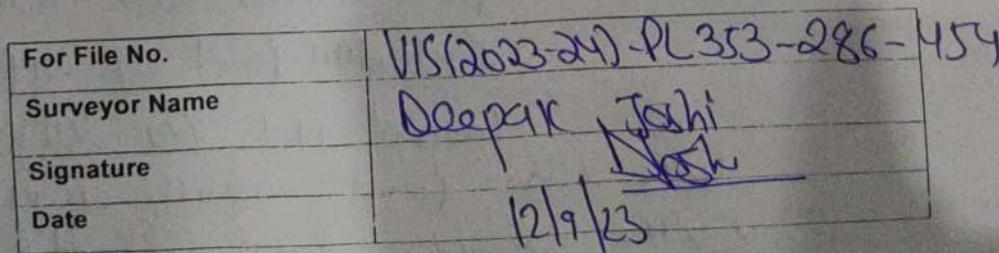 For File No. VIS(2023-24)-PL353-286-454
Surveyor Name Deepak Joshi
Signature
Date 12/9/23